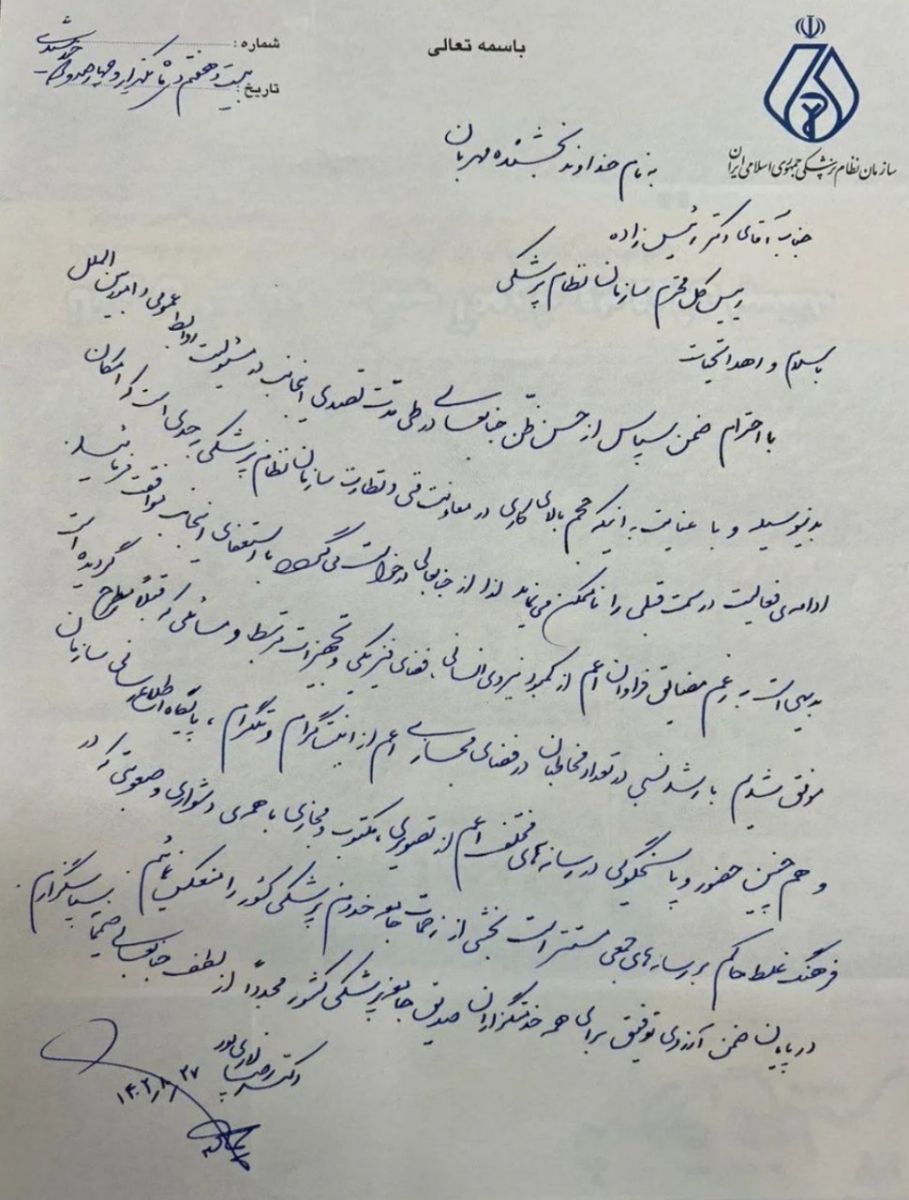 باسمه تعالی
شماره :
تاریخ :
بیست و هفتم
سازمان نظام پزشکی جمهوری اسلامی ایران
به نام خداوند بخشنده مهربان
جناب آقای دکتر رئیس زاده
رییس کل محترم سازمان نظام پزشکی
با سلام و اهدا تحیات
با احترام ضمن سپاس از حسن ظن جنابعالی در طی مدت تصدی اینجانب در مسئولیت روابط عمومی و امور بین الملل
بدینوسیله و با عنایت به اینکه حجم بالای کاری در معاونت فنی و نظارت سازمان نظام پزشکی بحدی است که امکان
ادامه‌ی فعالیت در سمت قبلی را ناممکن می‌نماید لذا از جنابعالی درخواست می‌گردد با استعفای اینجانب موافقت فرمائید.
بدیهی است به رغم مضایق فراوان اعم از کمبود نیروی انسانی، فضای فیزیکی و تجهیزات مرتبط و مسائلی که قبلاً مطرح گردیده است
موفق شدیم با رشد نسبی در تعداد مخاطبان در فضای مجازی اعم از اینستاگرام و تلگرام، پایگاه اطلاع رسانی سازمان
و هم چنین حضور و پاسخگویی در رسانه‌های مختلف اعم از تصویری، مکتوب و مجازی با همه‌ی دشواری و صعوبتی که در
فرهنگ غلط حاکم بر رسانه‌های جمعی مستتر است بخشی از زحمات جامعه خدوم پزشکی کشور را منعکس نمائیم.
در پایان ضمن آرزوی توفیق برای همه خدمتگزاران صدیق جامعه پزشکی کشور مجدداً از لطف جنابعالی صمیمانه سپاسگزارم.
دکتر رضا لاری پور
۱۴۰۲/۱۰/۲۷